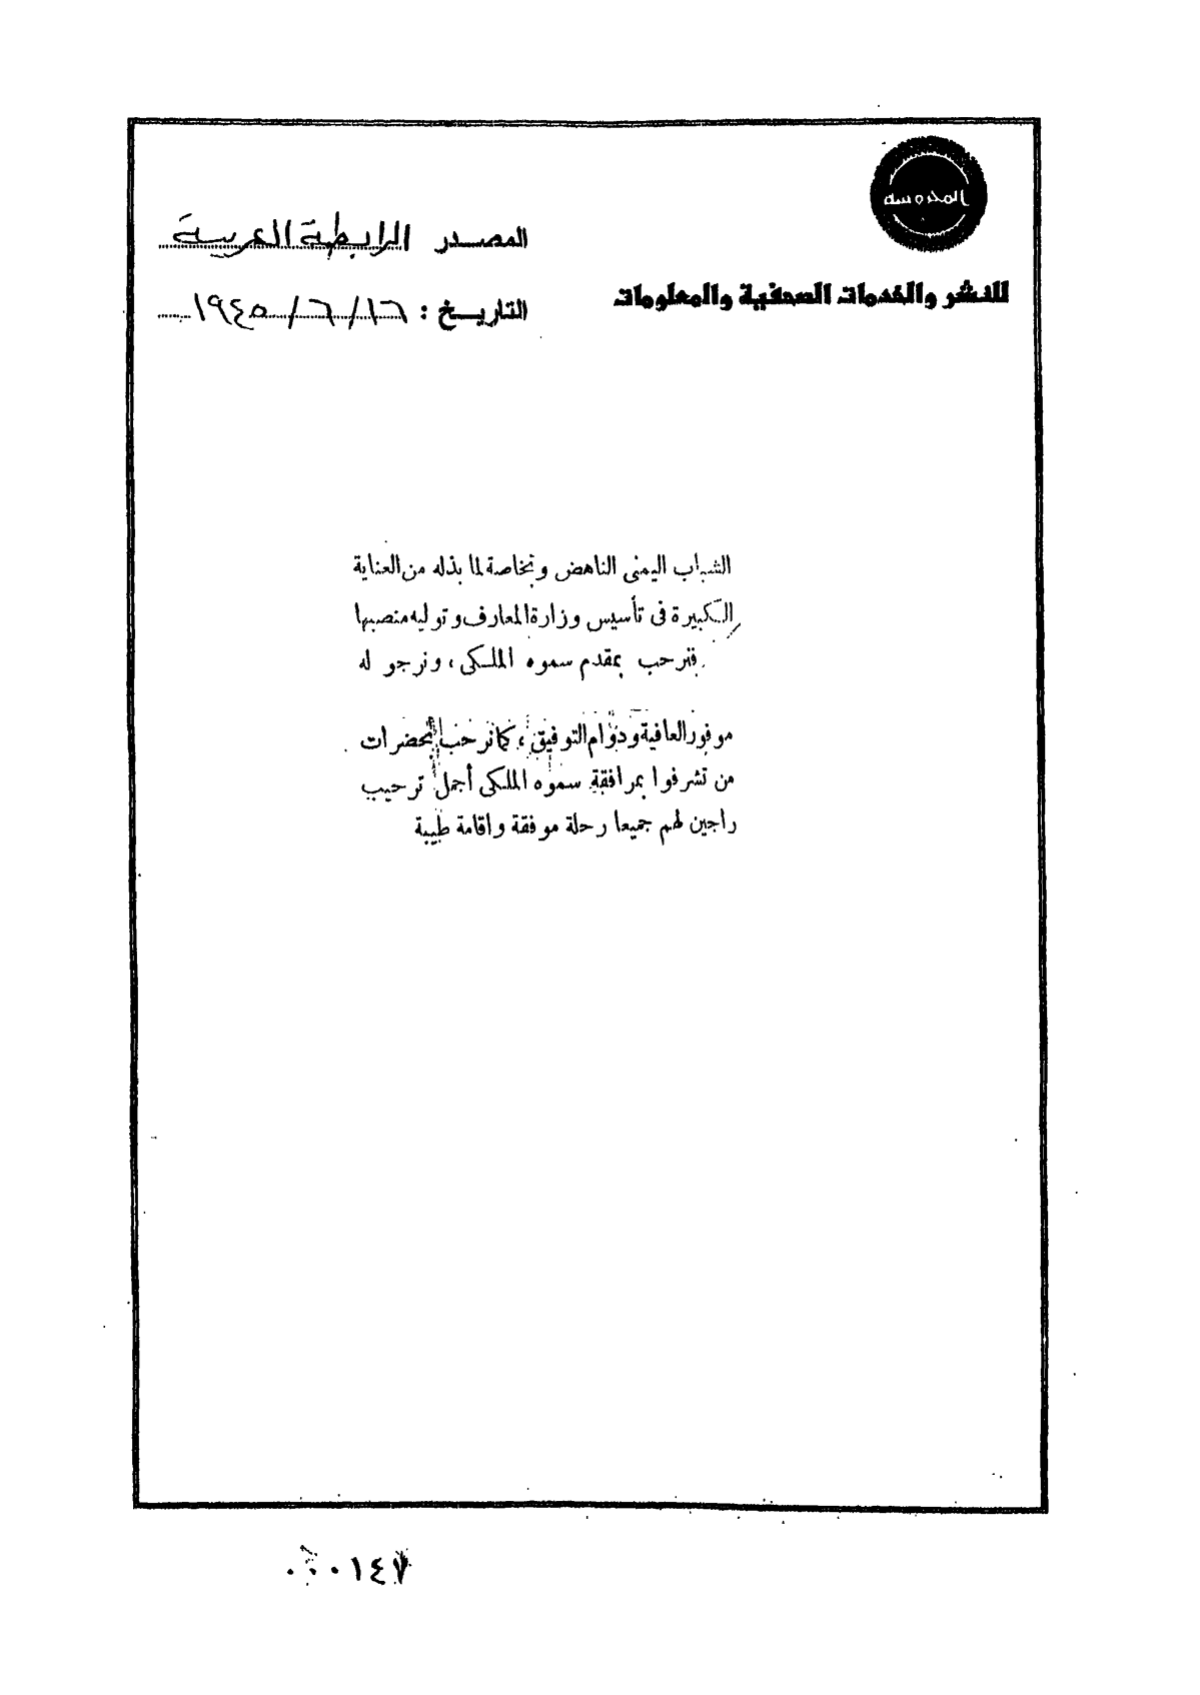 المحروسة
المصدر الرابطة العربية
للنشر والخدمات الصحفية والمعلومات
التاريخ : ١٦/٦/١٩٤٥
الشباب اليمنى الناهض وبخاصة لما بذله من العناية
الكبيرة فى تأسيس وزارة المعارف وتوليه منصبها
فنرحب بمقدم سموه الملكى، ونرجو له
موفور العافية ودوام التوفيق، كما نرحب بحضرات
من تشرفوا بمرافقة سموه الملكى أجمل ترحيب
راجين لهم جميعا رحلة موفقة واقامة طيبة
٠٠٠١٤٧